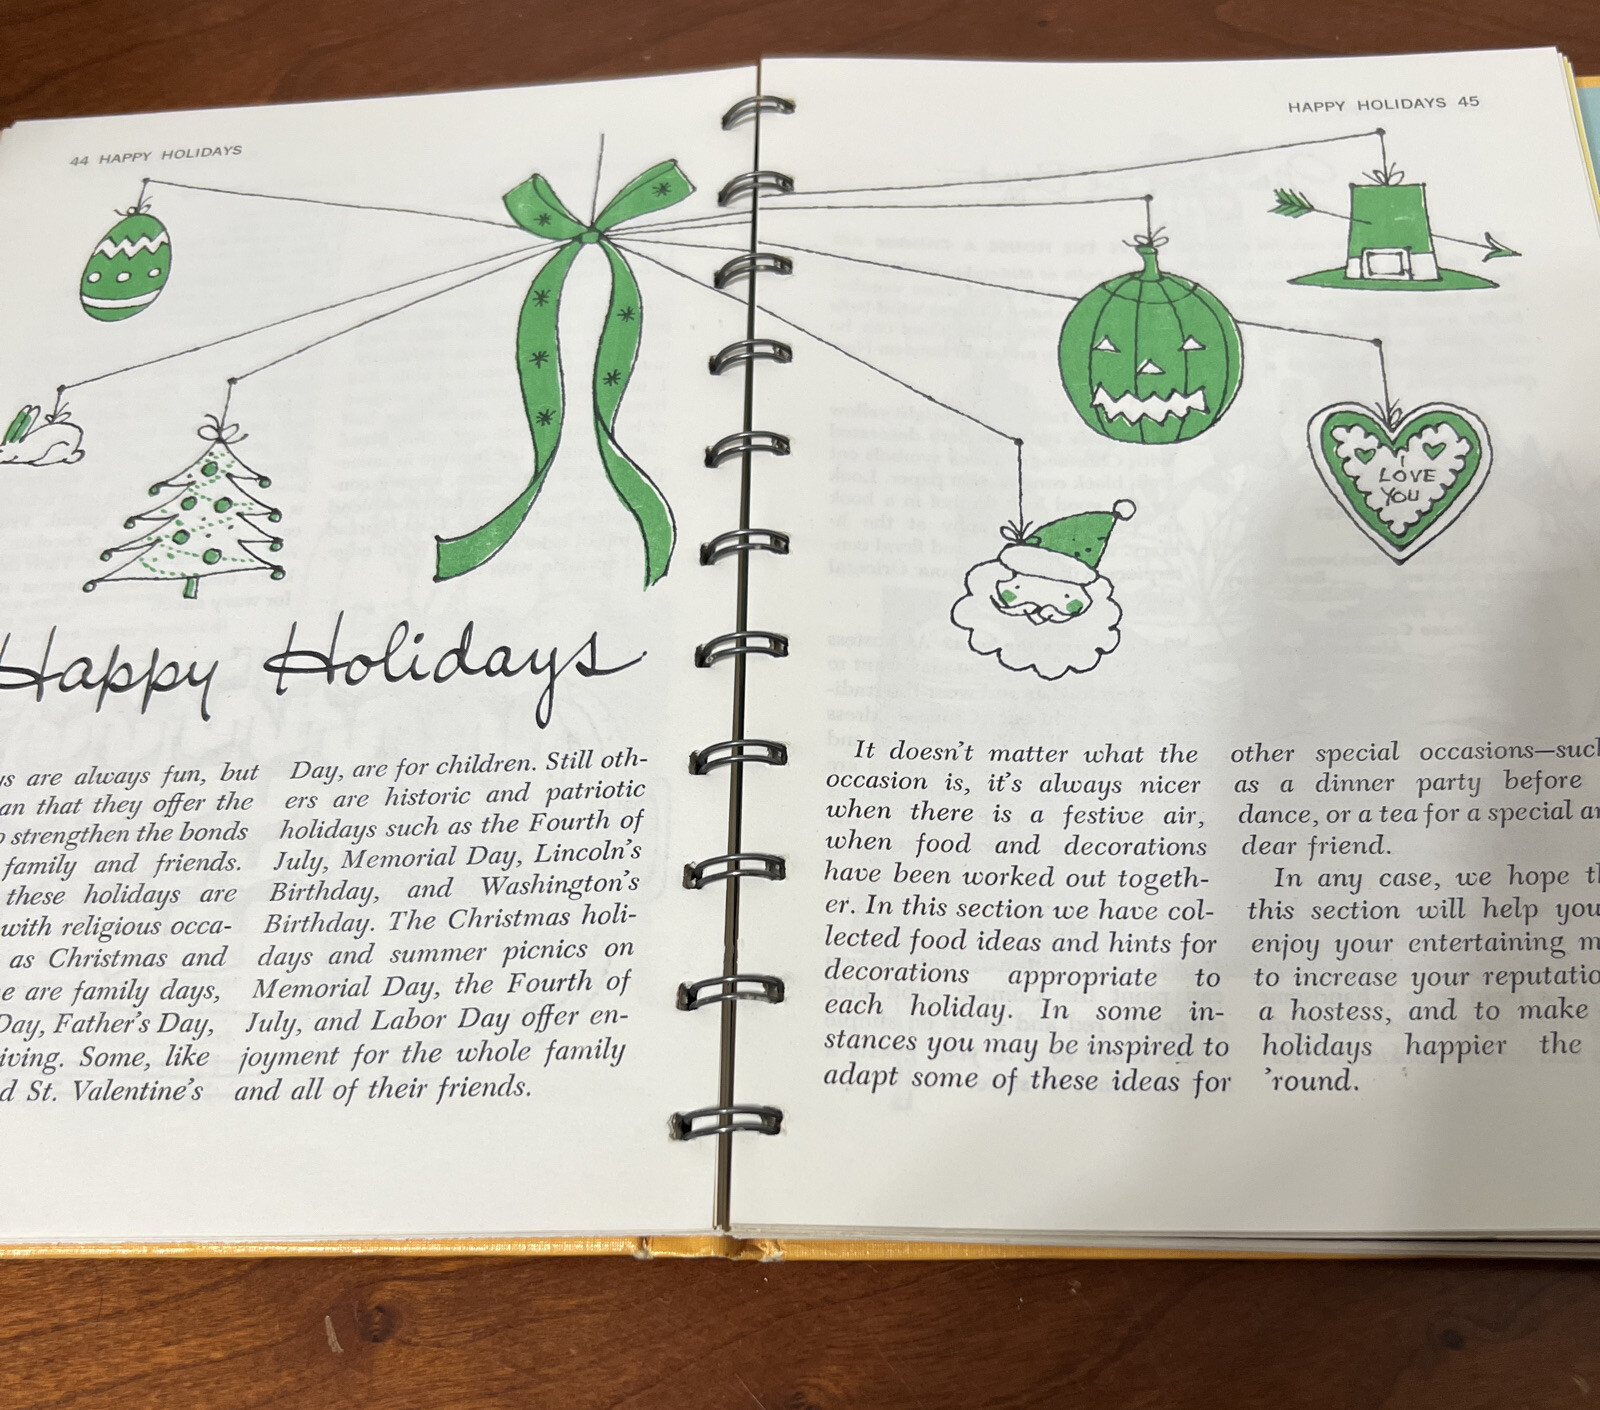 44 HAPPY HOLIDAYS
Happy Holidays
are always fun, but
that they offer the
strengthen the bonds
family and friends.
these holidays are
with religious occa-
as Christmas and
are family days,
Day, Father's Day,
Some, like
St. Valentine's
Day, are for children. Still oth-
ers are historic and patriotic
holidays such as the Fourth of
July, Memorial Day, Lincoln's
Birthday, and Washington's
Birthday. The Christmas holi-
days and summer picnics on
Memorial Day, the Fourth of
July, and Labor Day offer en-
joyment for the whole family
and all of their friends.
HAPPY HOLIDAYS 45
I
LOVE
YOU
It doesn't matter what the
occasion is, it's always nicer
when there is a festive air,
when food and decorations
have been worked out togeth-
er. In this section we have col-
lected food ideas and hints for
decorations appropriate to
each holiday. In some in-
stances you may be inspired to
adapt some of these ideas for
other special occasions—such
as a dinner party before
dance, or a tea for a special
dear friend.
In any case, we hope
this section will help you
enjoy your entertaining
to increase your
a hostess, and to make
holidays happier the
'round.